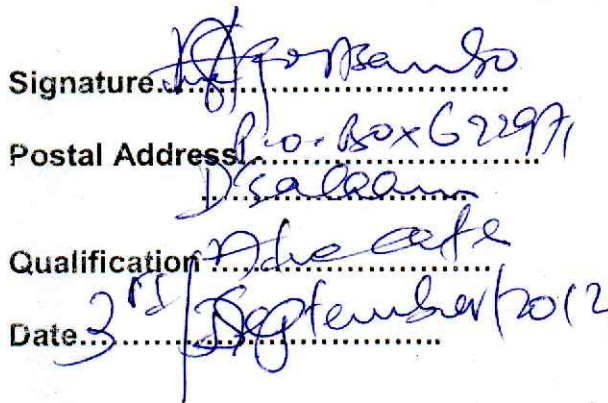 Signature....................
Postal Address P.o. Box 62297,
D'salaam
Qualification Advocate
Date 3rd/September/2012